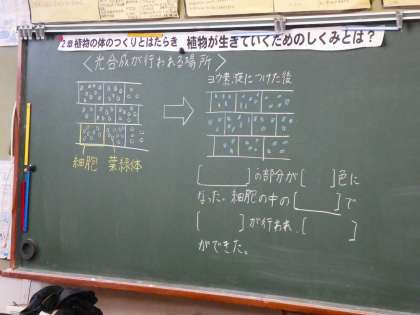 2章植物の体のつくりとはたらき 植物が生きていくためのしくみとは?
〈光合成が行われる場所〉
ヨウ素液につけた後
細胞 葉緑体
[ ]の部分が[ ]色に
なった。細胞の中の[ ]で
[ ]が行われ、[ ]
ができた。